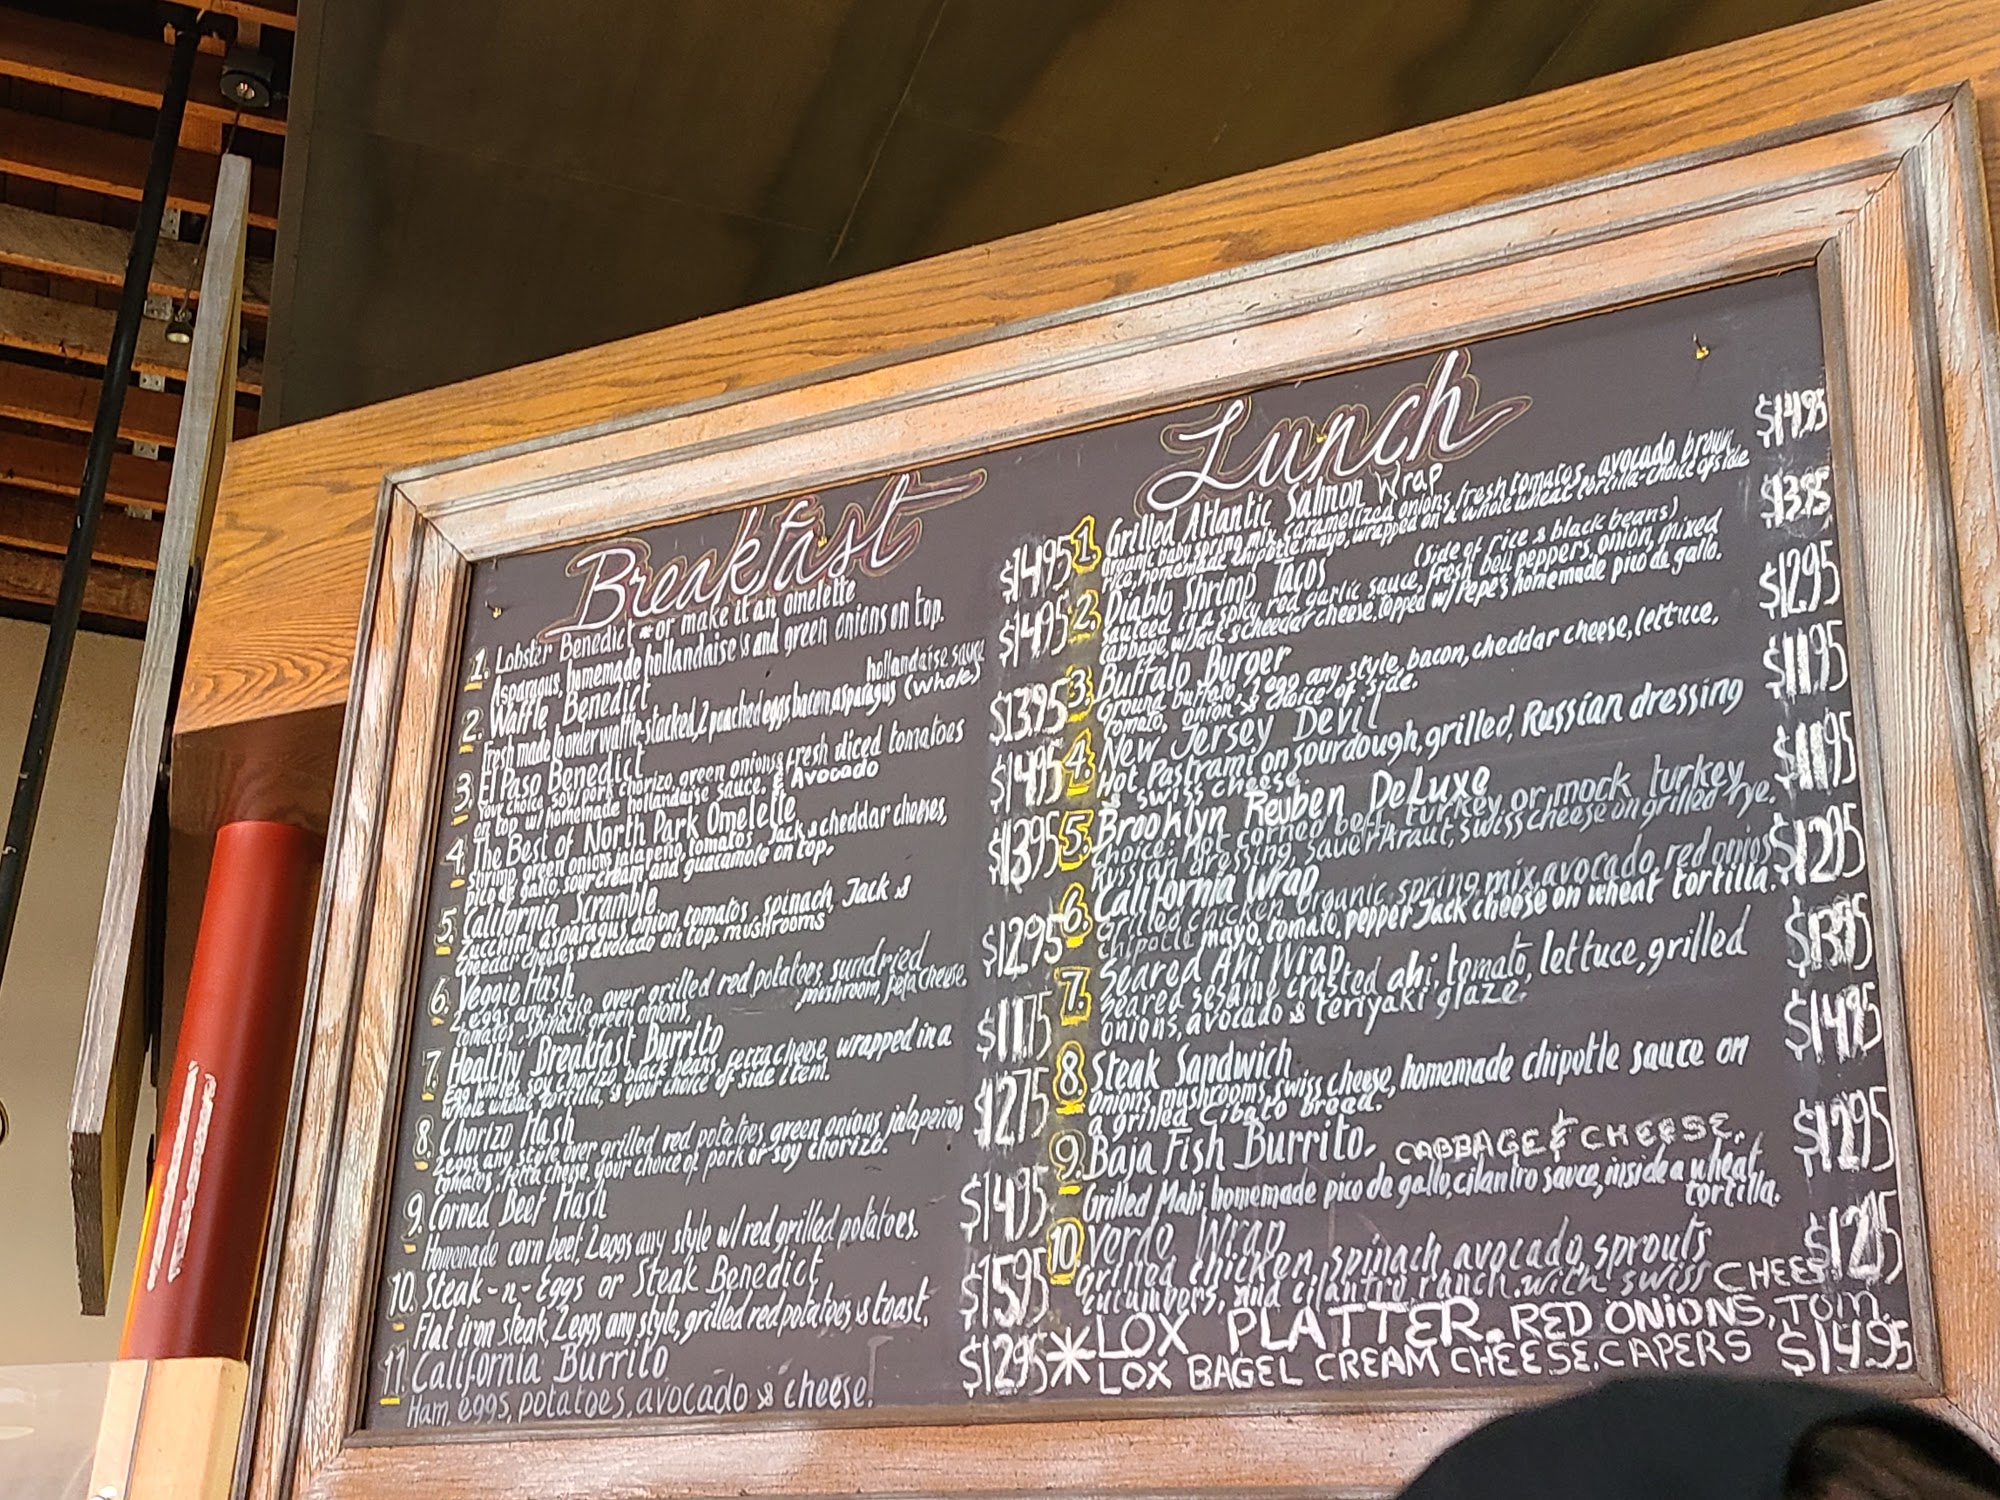 Breakfast
1. Lobster Benedict *or make it an omelette $14.95
Asparagus, homemade hollandaise & and green onions on top.
2. Waffle Benedict $14.95
hollandaise sauce
Fresh made to order waffle-stacked, 2 poached eggs bacon asparagus (whole)
3. El Paso Benedict $13.95
Your choice soy/pork chorizo, green onions & fresh diced tomatoes
on top w/ homemade hollandaise sauce. & Avocado
4. The Best of North Park Omelette $14.95
Shrimp, green onions, jalapeño, tomatos, Jack & cheddar cheeses,
pico de gallo, sour cream and guacamole on top.
5. California Scramble $13.95
Zucchini, asparagus onion, tomatos, spinach, Jack &
cheddar cheeses & avocado on top. mushrooms
6. Veggie Hash $12.95
2 eggs any style over grilled red potatoes, sundried
tomatos, spinach, green onions, mushroom, feta cheese.
7. Healthy Breakfast Burrito $11.75
Egg whites, soy chorizo, black beans, fetta cheese, wrapped in a
whole wheat tortilla, & your choice of side item.
8. Chorizo Hash $12.75
2 eggs any style over grilled red potatoes, green onions, jalapeños
tomatos, fetta cheese, your choice of pork or soy chorizo.
9. Corned Beef Hash $14.95
Homemade corn beef, 2 eggs any style w/ red grilled potatoes.
10. Steak-n-Eggs or Steak Benedict $15.95
Flat iron steak, 2 eggs any style, grilled red potatoes & toast.
11. California Burrito $12.95
Ham, eggs, potatoes, avocado & cheese!
Lunch
1. Grilled Atlantic Salmon Wrap $14.95
Organic baby spring mix, caramelized onions, fresh tomatos, avocado, brown
rice, homemade chipotle mayo, wrapped on a whole wheat tortilla-choice of side
2. Diablo Shrimp Tacos (side of rice & black beans) $13.95
sauteed in a spicy red garlic sauce, fresh bell peppers, onion, mixed
cabbage, w/ Jack & cheedar cheese, topped w/ Pepe's homemade pico de gallo.
3. Buffalo Burger $12.95
Ground buffalo, 1 egg any style, bacon, cheddar cheese, lettuce,
tomato, onion & choice of side.
4. New Jersey Devil $11.95
Hot Pastrami on sourdough, grilled, Russian dressing
& swiss cheese.
5. Brooklyn Reuben DeLuxe $11.95
Choice: Hot corned beef, turkey or mock turkey
Russian dressing, sauerkraut, swiss cheese on grilled rye.
6. California Wrap $12.95
Grilled chicken, organic spring mix, avocado, red onions
chipotle mayo, tomato, pepper Jack cheese on wheat tortilla.
7. Seared Ahi Wrap $13.95
Seared sesame crusted ahi, tomato, lettuce, grilled
onions, avocado & teriyaki glaze.
8. Steak Sandwich $14.95
Onions, mushrooms, swiss cheese, homemade chipotle sauce on
a grilled Cibato bread.
9. Baja Fish Burrito. CABBAGE & CHEESE. $12.95
Grilled Mahi, homemade pico de gallo, cilantro sauce, inside a wheat
tortilla.
10 Verde Wrap $12.95
Grilled chicken, spinach, avocado, sprouts
cucumbers, and cilantro ranch. with swiss CHEESE
*LOX PLATTER. RED ONIONS, TOM,
LOX BAGEL CREAM CHEESE. CAPERS $14.95